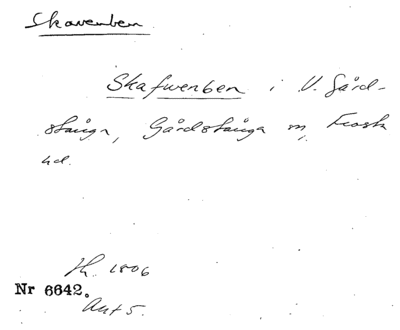 Skavenben
Skafwenben i V. Gård-
stånga, Gårdstånga sn, Frosta
hd.
H. 1806
Nr 6642.
Akt 5.